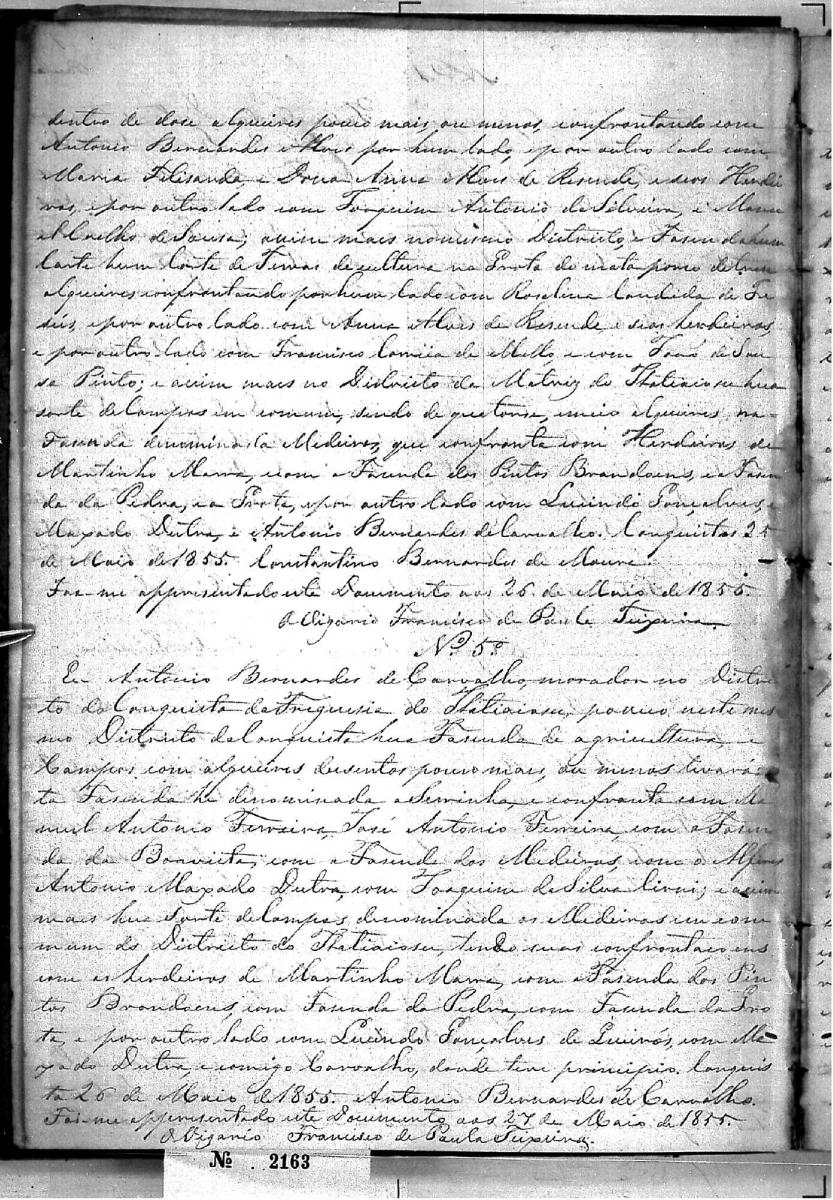 dentro de dose alqueires pouco mais, ou menos, confrontando com
Antonio Bernardes Alves por hum lado, e por outro lado com
Maria Felisarda, e Dona Anna Alves de Resende, e seos Herdei
ros, e por outro lado com Joaquim Antonio da Silveira, e Manoe
el Coelho de Sousa; assim mais no mesmo Districto, e Fasenda hum
corte de Terras de cultura na Grota do mata porco de tres
alqueires confrontando por hum lado com Roselina Candida de Je
sús, e por outro lado com Anna Alves de Resende e seos herdeiros,
e por outro lado com Francisco Corrêa de Mello, e com José de Sou
sa Pinto; e assim mais no Districto da Matriz do Itatiaiossu hua
sorte de Campos em comum, sendo de quatorse, e meio alqueires na
Fasenda denominada Medeiros, que confronta com Herdeiros de
Martinho Marra, e com a Fasenda dos Pintos Brandoens, e a Fasen
da da Pedra, e a Grota, e por outro lado com Lucindo Gonçalves, e
Maxado Dutra, e Antonio Bernardes de Carvalho. Conquista 25
de Maio de 1855. Constantino Bernardes de Moura.
Foi-me appresentado este Documento aos 26 de Maio de 1855.
O Vigario Francisco de Paula Teixeira.
Nº 5º
Eu Antonio Bernardes de Carvalho, morador no Distri
cto da Conquista da Freguesia do Itatiaiossu, possuo neste mes
mo Districto da Conquista hua Fasenda de agricultura, e
Campos com alqueires dusentos pouco mais, ou menos
ta Fasenda he denominada a Serrinha, e confronta com Ma
noel Antonio Ferreira, José Antonio Ferreira, com a Fasen
da da Boavista, com a Fasenda dos Medeiros, com o Alferes
Antonio Maxado Dutra, com Joaquim da Silva; e assim
mais hua sorte de Campos denominada os Medeiros em com
mum do Districto do Itatiaiossu, tendo suas confrontaçoens
com os herdeiros de Martinho Marra, com a Fasenda dos Pin
tos Brandoens, com Fasenda da Pedra, com Fasenda da Gro
ta, e por outro lado com Lucindo Gonçalves de Queirós, com Ma
xado Dutra, e comigo Carvalho, donde teve principio. Conquis
ta 26 de Maio de 1855. Antonio Bernardes de Carvalho.
Foi-me appresentado este Documento aos 27 de Maio de 1855.
O Vigario Francisco de Paula Teixeira.
Nº 2163